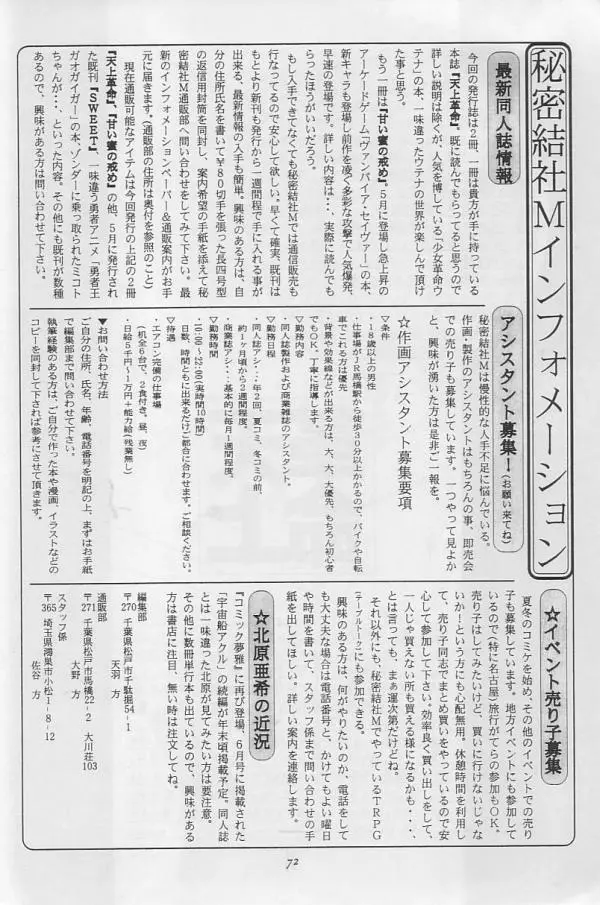 秘密結社Mインフォメーション
最新同人誌情報
今回の発行誌は2冊、一冊は貴方が手に持っている
本誌『天上革命』、既に読んでもらってると思うので
詳しい説明は除くが、人気を博している「少女革命ウ
テナ」の本、一味違ったウテナの世界が楽しんで頂け
た事と思う。
もう一冊は『甘い蜜の戒め』、5月に登場し急上昇の
アーケードゲーム「ヴァンパイア・セイヴァー」の本、
新キャラも登場し前作を凌ぐ多彩な攻撃で人気爆発、
早速の登場です。詳しい内容は・・、実際に読んでも
らったほうがいいだろう。
もし入手できてなくても秘密結社Mでは通信販売も
行なってるので安心して欲しい。早くて確実、既刊は
もとより新刊も発行から一週間程で手に入れる事が
出来る、最新情報の入手も簡単。興味のある方は、自
分の住所氏名を書いて￥80切手を張った長四号型
の返信用封筒を同封し、案内希望の手紙を添えて秘
密結社M通販部へ問い合わせをしてみて下さい。最
新のインフォメーションペーパー&通販案内がお手
元に届きます。(通販部の住所は奥付を参照のこと)
現在通販可能なアイテムは今回発行の上記の2冊
『天上革命』、『甘い蜜の戒め』の他、5月に発行され
た既刊『SWEET』、一味違う勇者アニメ「勇者王
ガオガイガー」の本、ゾンダーに乗っ取られたミコト
ちゃんが・・、といった内容。その他にも既刊が数種
あるので、興味がある方は問い合わせて下さい。
アシスタント募集!(お願い来てね)
秘密結社Mは慢性的な人手不足に悩んでいる。
作画・製作のアシスタントはもちろんの事、即売会
での売り子も募集しています。一つやって見よか
と、興味が湧いた方は是非ご一報を。
☆作画アシスタント募集要項
▽条件
・18歳以上の男性
・仕事場がJR馬橋駅から徒歩30分以上かかるので、バイクや自転
車でこれる方は優先
・背景や効果線などが出来る方は、大、大、大優先、もちろん初心者
でもOK、丁寧に指導します。
▽勤務内容
・同人誌製作および商業雑誌のアシスタント。
▽勤務日程
・同人誌アシ・・・年2回、夏コミ、冬コミの前、
約1ヶ月頃から2週間程度。
・商業誌アシ・・・基本的に毎月1週間程度。
▽勤務時間
・10:00〜22:00(実時間10時間)
日数、時間ともに出来るだけご都合に合わせます。ご相談ください。
▽待遇
・エアコン完備の仕事場
(机全6台で、2食付き、昼、夜)
・日給5千円〜1万円+能力給(残業無し)
▼お問い合わせ方法
ご自分の住所、氏名、年齢、電話番号を明記の上、まずはお手紙
で編集部まで問い合わせて下さい。
執筆経験のある方は、ご自分で作った本や漫画、イラストなどの
コピーを同封して下されば参考にさせて頂きます。
☆イベント売り子募集
夏冬のコミケを始め、その他のイベントでの売り
子も募集しています。地方イベントにも参加して
いるので(特に名古屋)旅行がてらの参加もOK。
売り子はしてみたいけど、買いに行けないじゃな
いか!という方にも心配無用。休憩時間を利用し
て、売り子同志でまとめ買いをやっているので安
心して参加して下さい。効率良く買い出しをして、
一人じゃ買えない所も買える様になるかも・・・、
とは言っても、まぁ運次第だけどね。
それ以外にも、秘密結社MでやっているTRPG
(テーブルトーク)にも参加できる。
興味のある方は、何がやりたいのか、電話をして
も大丈夫な場合は電話番号と、かけてもよい曜日
や時間を書いて、スタッフ係まで問い合わせの手
紙を出してほしい。詳しい案内を連絡します。
☆北原亜希の近況
『コミック夢雅』に再び登場、6月号に掲載された
「宇宙船アクル」の続編が年末頃掲載予定。同人誌
とは一味違った北原が見てみたい方は要注意。
その他に数冊単行本も出ているので、興味がある
方は書店に注目、無い時は注文してね。
編集部
〒270 千葉県松戸市千駄堀54-1
天羽 方
通販部
〒271 千葉県松戸市馬橋22-2 大川荘103
大野 方
スタッフ係
〒365 埼玉県鴻巣市小松1-8-12
佐谷 方
72